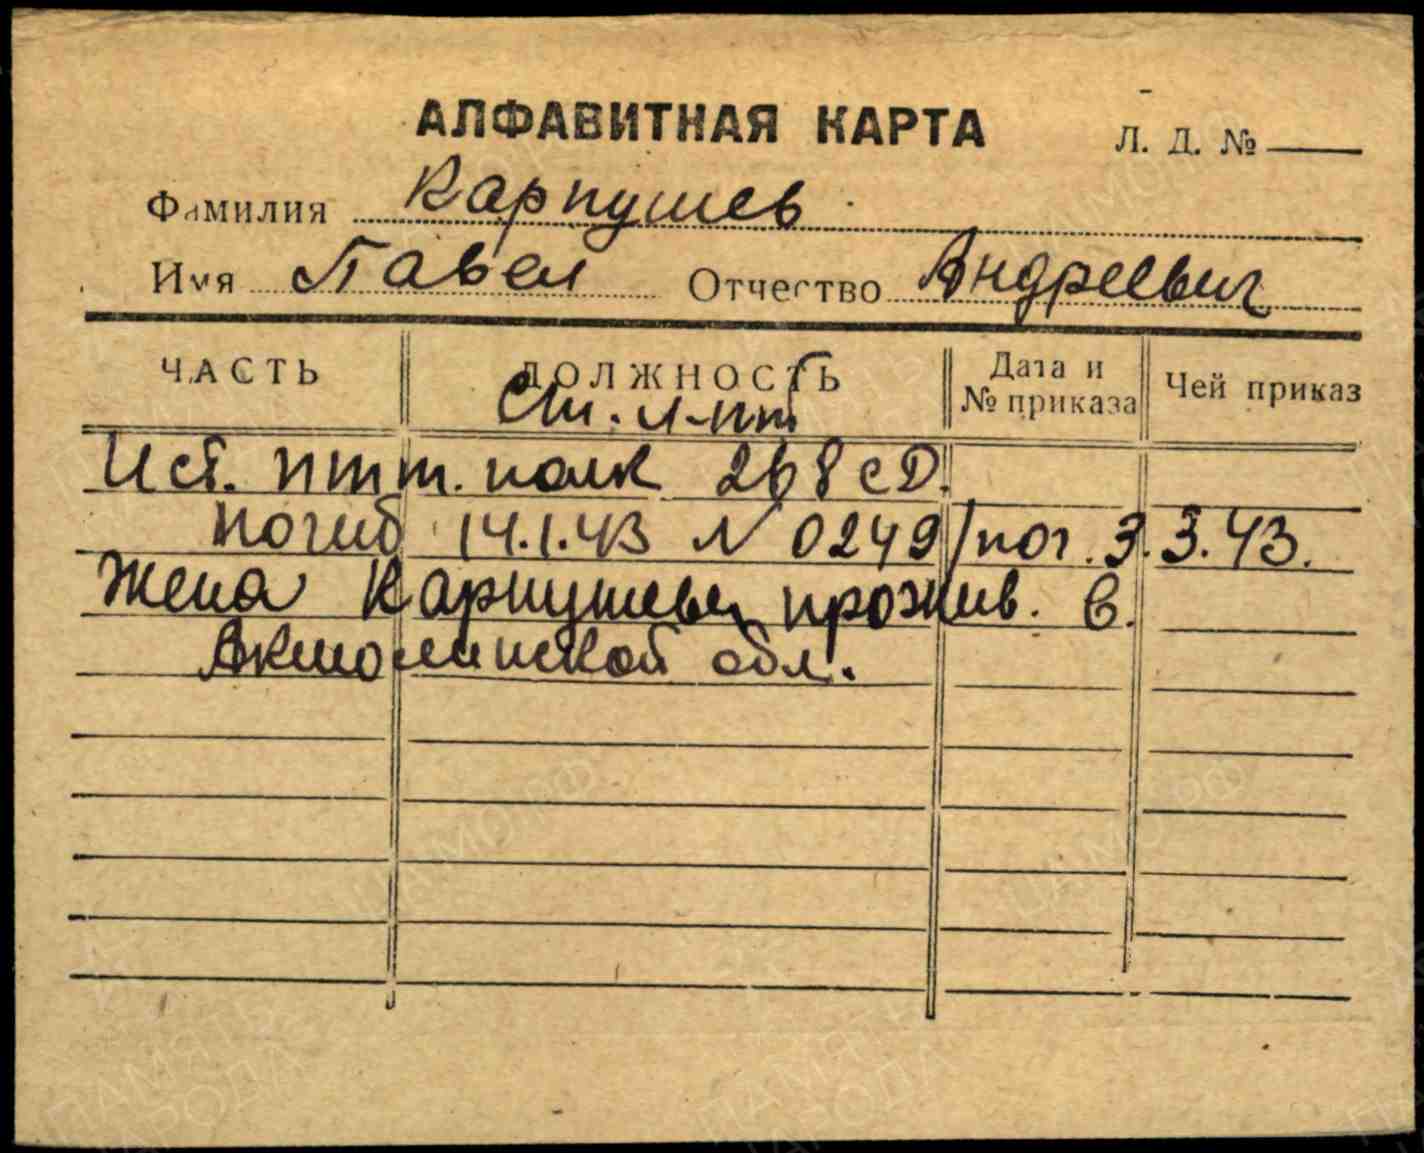 АЛФАВИТНАЯ КАРТА Л. Д. №
Фамилия Карпушев
Имя Павел Отчество Андреевич
ЧАСТЬ ДОЛЖНОСТЬ Дата и № приказа Чей приказ
Ст. л-нт
Ист. птт. полк 268 СД.
погиб 14.1.43 N 0249/пог. 3.3.43.
Жена Карпушева прожив. в.
Акмолинской обл.